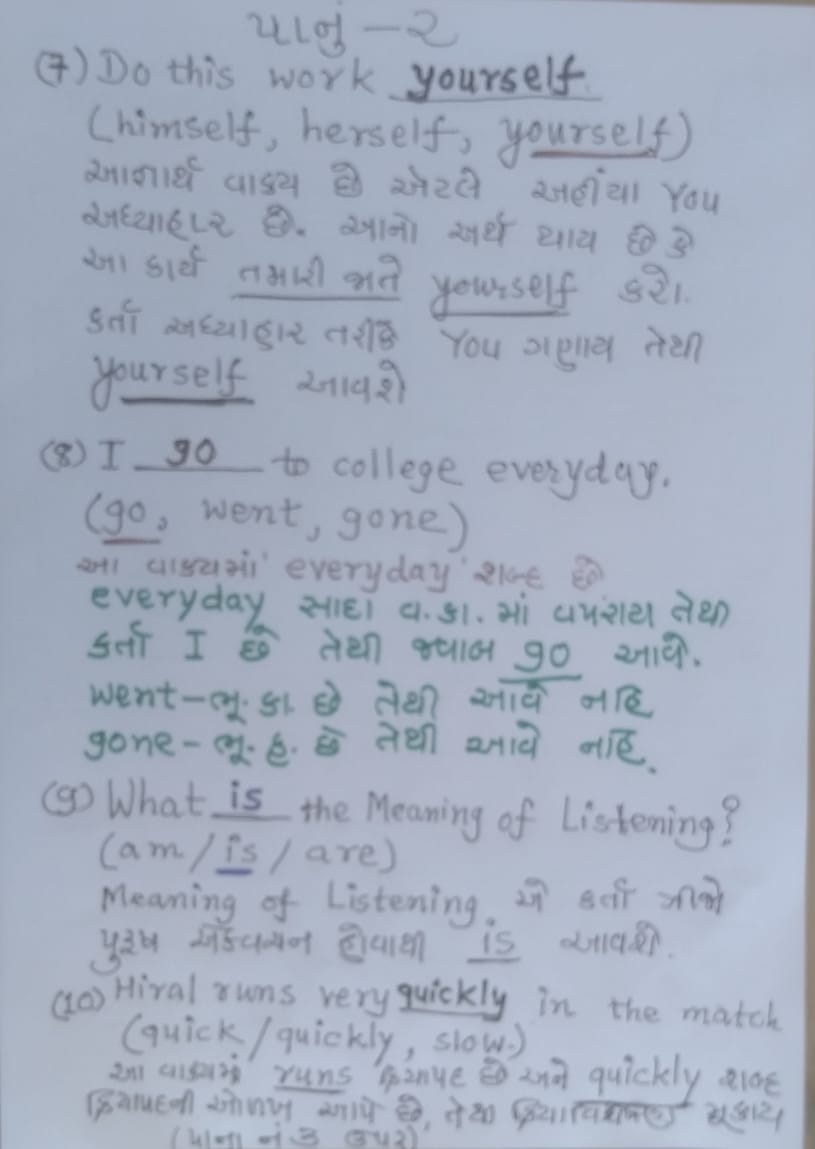 પાનું - ૨
(7) Do this work yourself.
(himself, herself, yourself)
આજ્ઞાર્થ વાક્ય છે એટલે અહીંયા You
અધ્યાહાર છે. આનો અર્થ થાય છે કે
આ કાર્ય તમારી જાતે yourself કરો.
કર્તા અધ્યાહાર તરીકે You ગણાય તેથી
yourself આવશે
(8) I go to college everyday.
(go, went, gone)
આ વાક્યમાં 'everyday' શબ્દ છે
everyday સાદા વ.કા. માં વપરાય તેથી
કર્તા I છે તેથી જવાબ go આવે.
went - ભૂ.કા. છે તેથી આવે નહિ
gone - ભૂ.કૃ. છે તેથી આવે નહિ.
(9) What is the Meaning of Listening?
(am / is / are)
Meaning of Listening એ કર્તા ત્રીજો
પુરૂષ એકવચન હોવાથી is આવશે.
(10) Hiral runs very quickly in the match
(quick / quickly, slow.)
આ વાક્યમાં runs ક્રિયાપદ છે અને quickly શબ્દ
ક્રિયાપદની ઓળખ આપે છે, તેથી ક્રિયાવિશેષણ મૂકાય
(પાના નં ૩ ઉપર)